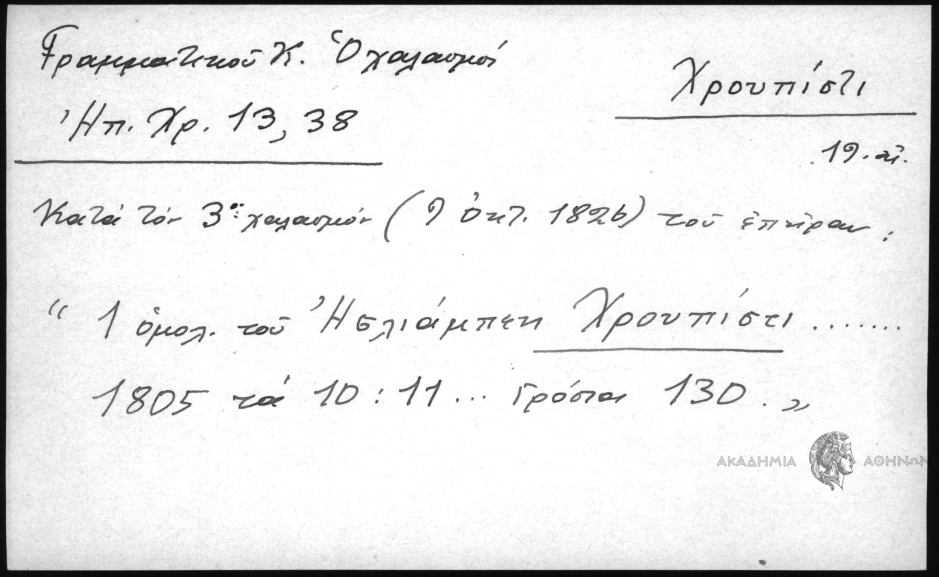 Γραμματικοῦ Κ. Ὁ χαλασμός
Ἠπ. Χρ. 13, 38
Χρουπίστι
19. αἰ.
Κατά τόν 3ον χαλασμόν (9 ὀκτ. 1826) τοῦ ἐπῆραν:
“ 1 ὁμολ. τοῦ Ἠσλιάμπεη Χρουπίστι .......
1805 τά 10 : 11 ... Γρόσια 130 . „
ΑΚΑΔΗΜΙΑ ΑΘΗΝΩΝ